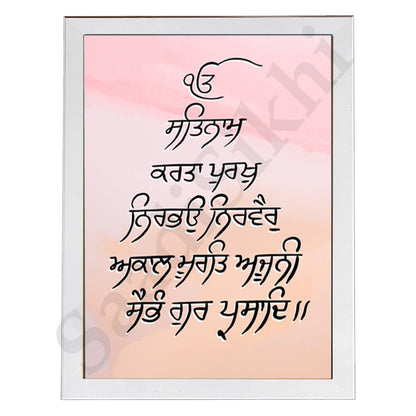 ੴ
ਸਤਿਨਾਮੁ
ਕਰਤਾ ਪੁਰਖੁ
ਨਿਰਭਉ ਨਿਰਵੈਰੁ
ਅਕਾਲ ਮੂਰਤਿ ਅਜੂਨੀ
ਸੈਭੰ ਗੁਰ ਪ੍ਰਸਾਦਿ॥
SaadiSikhi